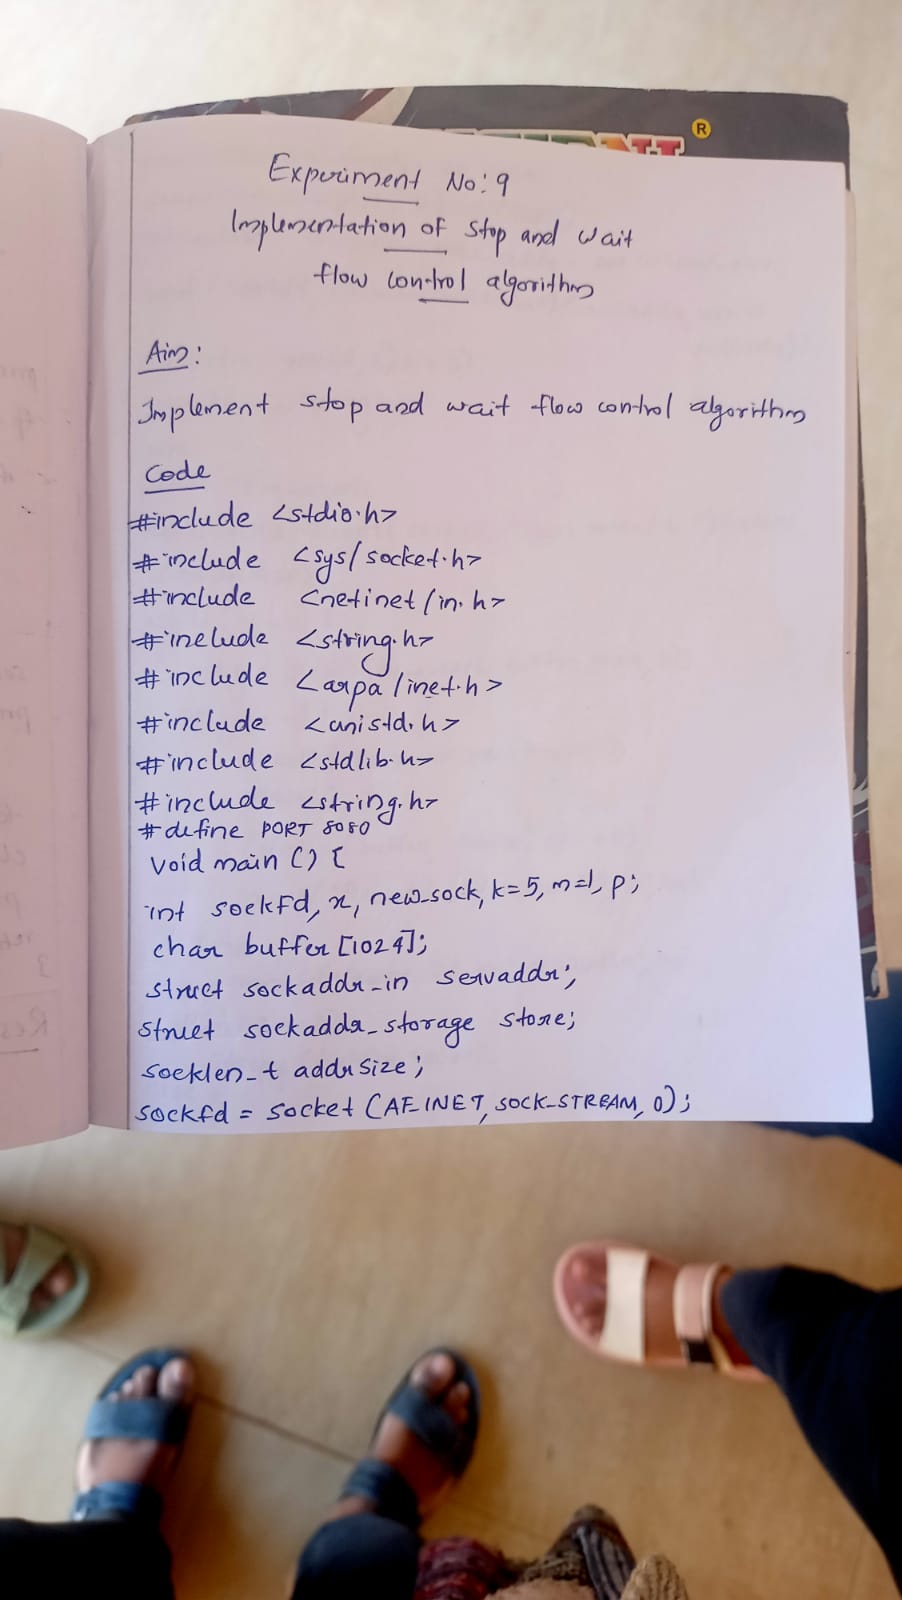 R
Experiment No: 9
Implementation of stop and wait
flow control algorithm
Aim:
Implement stop and wait flow control algorithm
Code
#include <stdio.h>
#include <sys/socket.h>
#include <netinet/in.h>
#include <string.h>
#include <arpa/inet.h>
#include <unistd.h>
#include <stdlib.h>
#include <string.h>
#define PORT 8080
void main () {
int sockfd, x, new_sock, k=5, m=1, p;
char buffer [1024];
struct sockaddr_in servaddr;
struct sockaddr_storage store;
socklen_t addrsize;
sockfd = socket (AF_INET, SOCK_STREAM, 0);